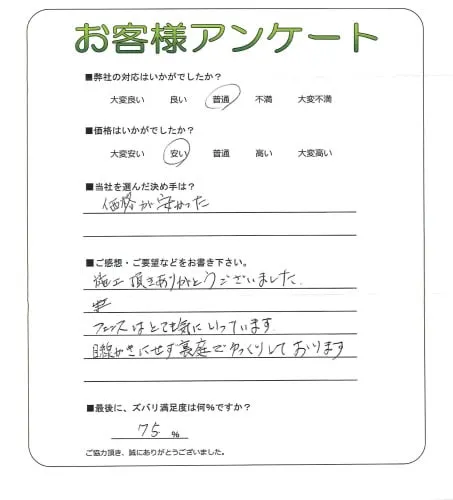 お客様アンケート
■弊社の対応はいかがでしたか？
大変良い 良い 普通 不満 大変不満
■価格はいかがでしたか？
大変安い 安い 普通 高い 大変高い
■当社を選んだ決め手は？
価格が安かった
■ご感想・ご要望などをお書き下さい。
施工頂きありがとうございました。
フェンスはとても気にいっています。
目線きにせず裏庭でゆっくりしております
■最後に、ズバリ満足度は何％ですか？
75 %
ご協力頂き、誠にありがとうございました。